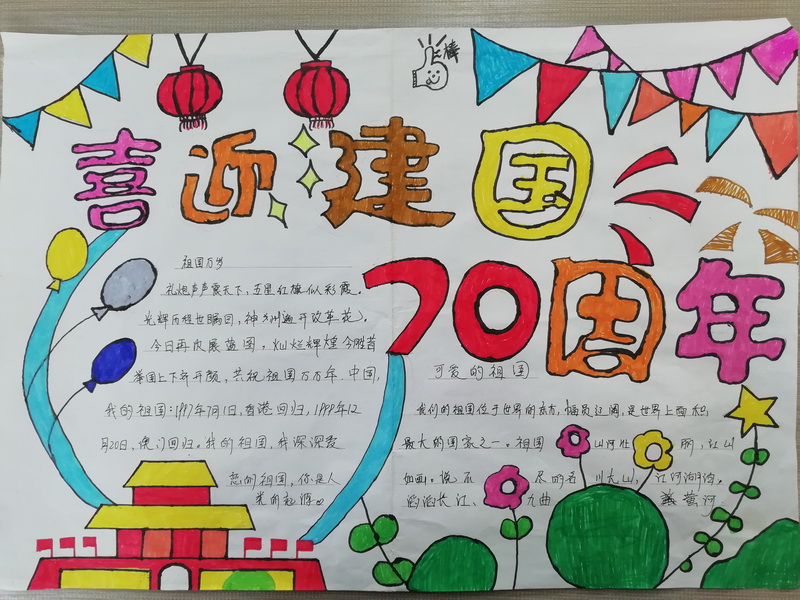 棒
喜迎建国
70周年
祖国万岁
礼炮声声震天下，五星红旗似彩霞。
光辉历程世瞩目，神州遍开改革花。
今日再次展蓝图，灿烂辉煌今胜昔
举国上下齐开颜，共祝祖国万万年。中国，
我的祖国：1997年7月1日，香港回归，1999年12
月20日，澳门回归。我的祖国，我深深爱
您的祖国，你是人
类的起源。
可爱的祖国
我们的祖国位于世界的东方，幅员辽阔，是世界上面积
最大的国家之一。祖国 山河壮 丽，江山
如画。说不 尽的名 川大山，江河湖海。
滔滔长江、 九曲 黄河